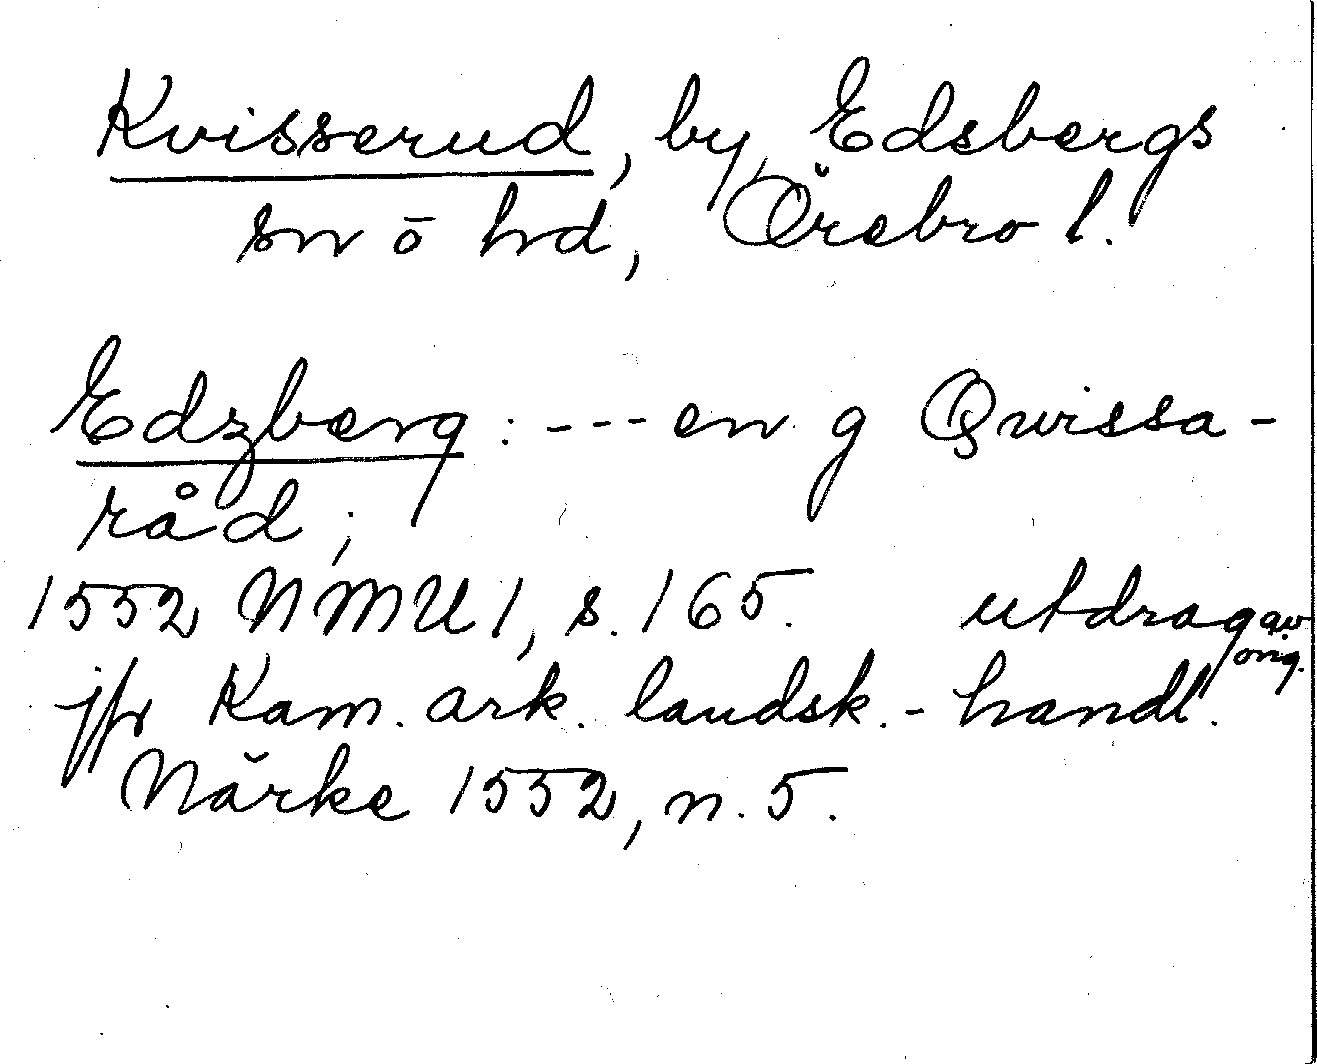 Kvisserud, by, Edsbergs
sn o hd, Örebro l.
Edzberg: --- en g Qwissa-
råd;
1552 NMU 1, s. 165. utdrag av
orig.
jfr Kam. ark. landsk.-handl.
Närke 1552, n. 5.